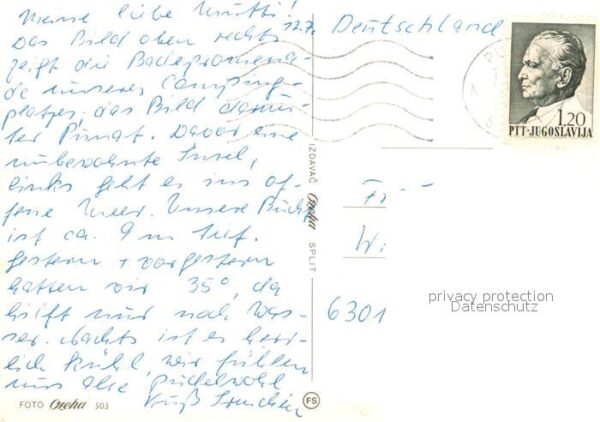 Meine liebe Mutti!
22.7.
Das Bild oben rechts
zeigt die Badepromena-
de unseres Camping-
platzes, das Bild darun-
ter Punat. Davor eine
unbewohnte Insel,
links geht es ins of-
fene Meer. Unsere Bucht
ist ca. 9 m tief.
Gestern + vorgestern
hatten wir 35°, da
hilft nur noch Was-
ser. Nachts ist es herr-
lich kühl, wir fühlen
uns alle pudelwohl
Kuß
FOTO Oreha 503
IZDAVAČ Oreha SPLIT
FS
Deutschland
1.20
PTT-JUGOSLAVIJA
Fr
Wi
6301
privacy protection
Datenschutz